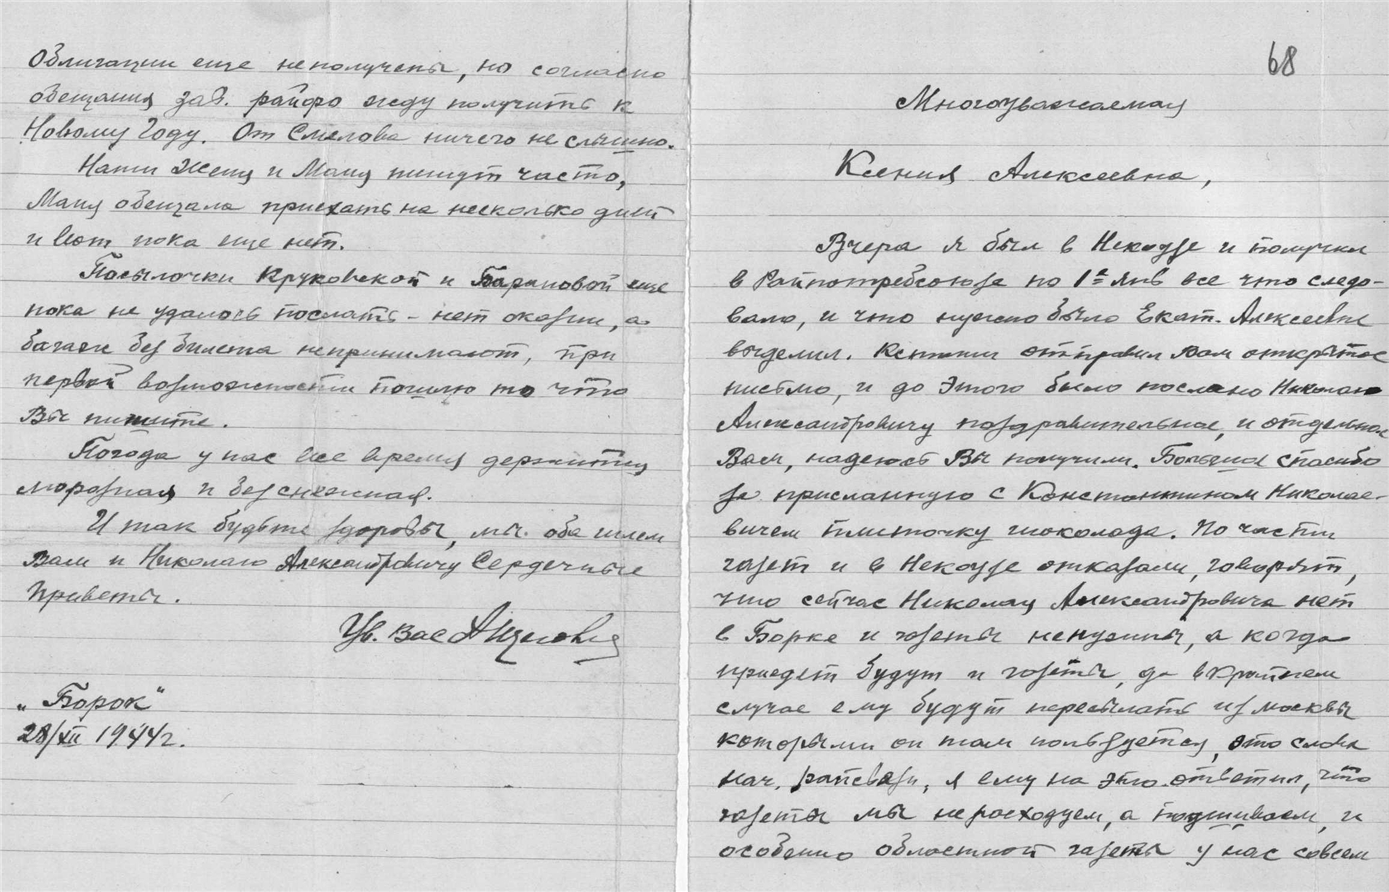 Облигации еще неполучены, но согласно
обещания зав. райфо жду получить к
Новому Году. От Смелова ничего не слышно.
Наши Женя и Маня пишут часто,
Маня обещала приехать на несколько дней
и вот пока еще нет.
Посылочки Круковской и Барановой еще
пока не удалось послать - нет оказии, а
багаж без билета непринимают, при
первой возможности пошлю то что
Вы пишите.
Погода у нас все время держится
морозная и безснежная.
И так будьте здоровы, мы оба шлем
Вам и Николаю Александровичу Сердечные
Приветы.
Ув. Вас
„Борок“
28/XII 1944г.
68
Многоуважаемая
Ксения Алексеевна,
Вчера я был в Некоузе и получил
в Райпотребсоюзе по 1е Янв все что следо-
вало, и что нужно было Екат. Алексеевне
выделил. Кстати отправил Вам открытое
письмо, и до этого было послано Николаю
Александровичу поздравительное, и отдельное
Вам, надеюсь Вы получили. Большое спасибо
за присланную с Константином Николае-
вичем плиточку шоколада. По части
газет и в Некоузе отказали, говорят,
что сейчас Николая Александровича нет
в Борке и газеты ненужны, а когда
приедет будут и газеты, да в крайнем
случае ему будут пересылать из Москвы
которыми он там пользуется, это слова
нач. райсвязи, я ему на это ответил, что
газеты мы нерасходуем, а подшиваем, и
особенно областной газеты у нас совсем